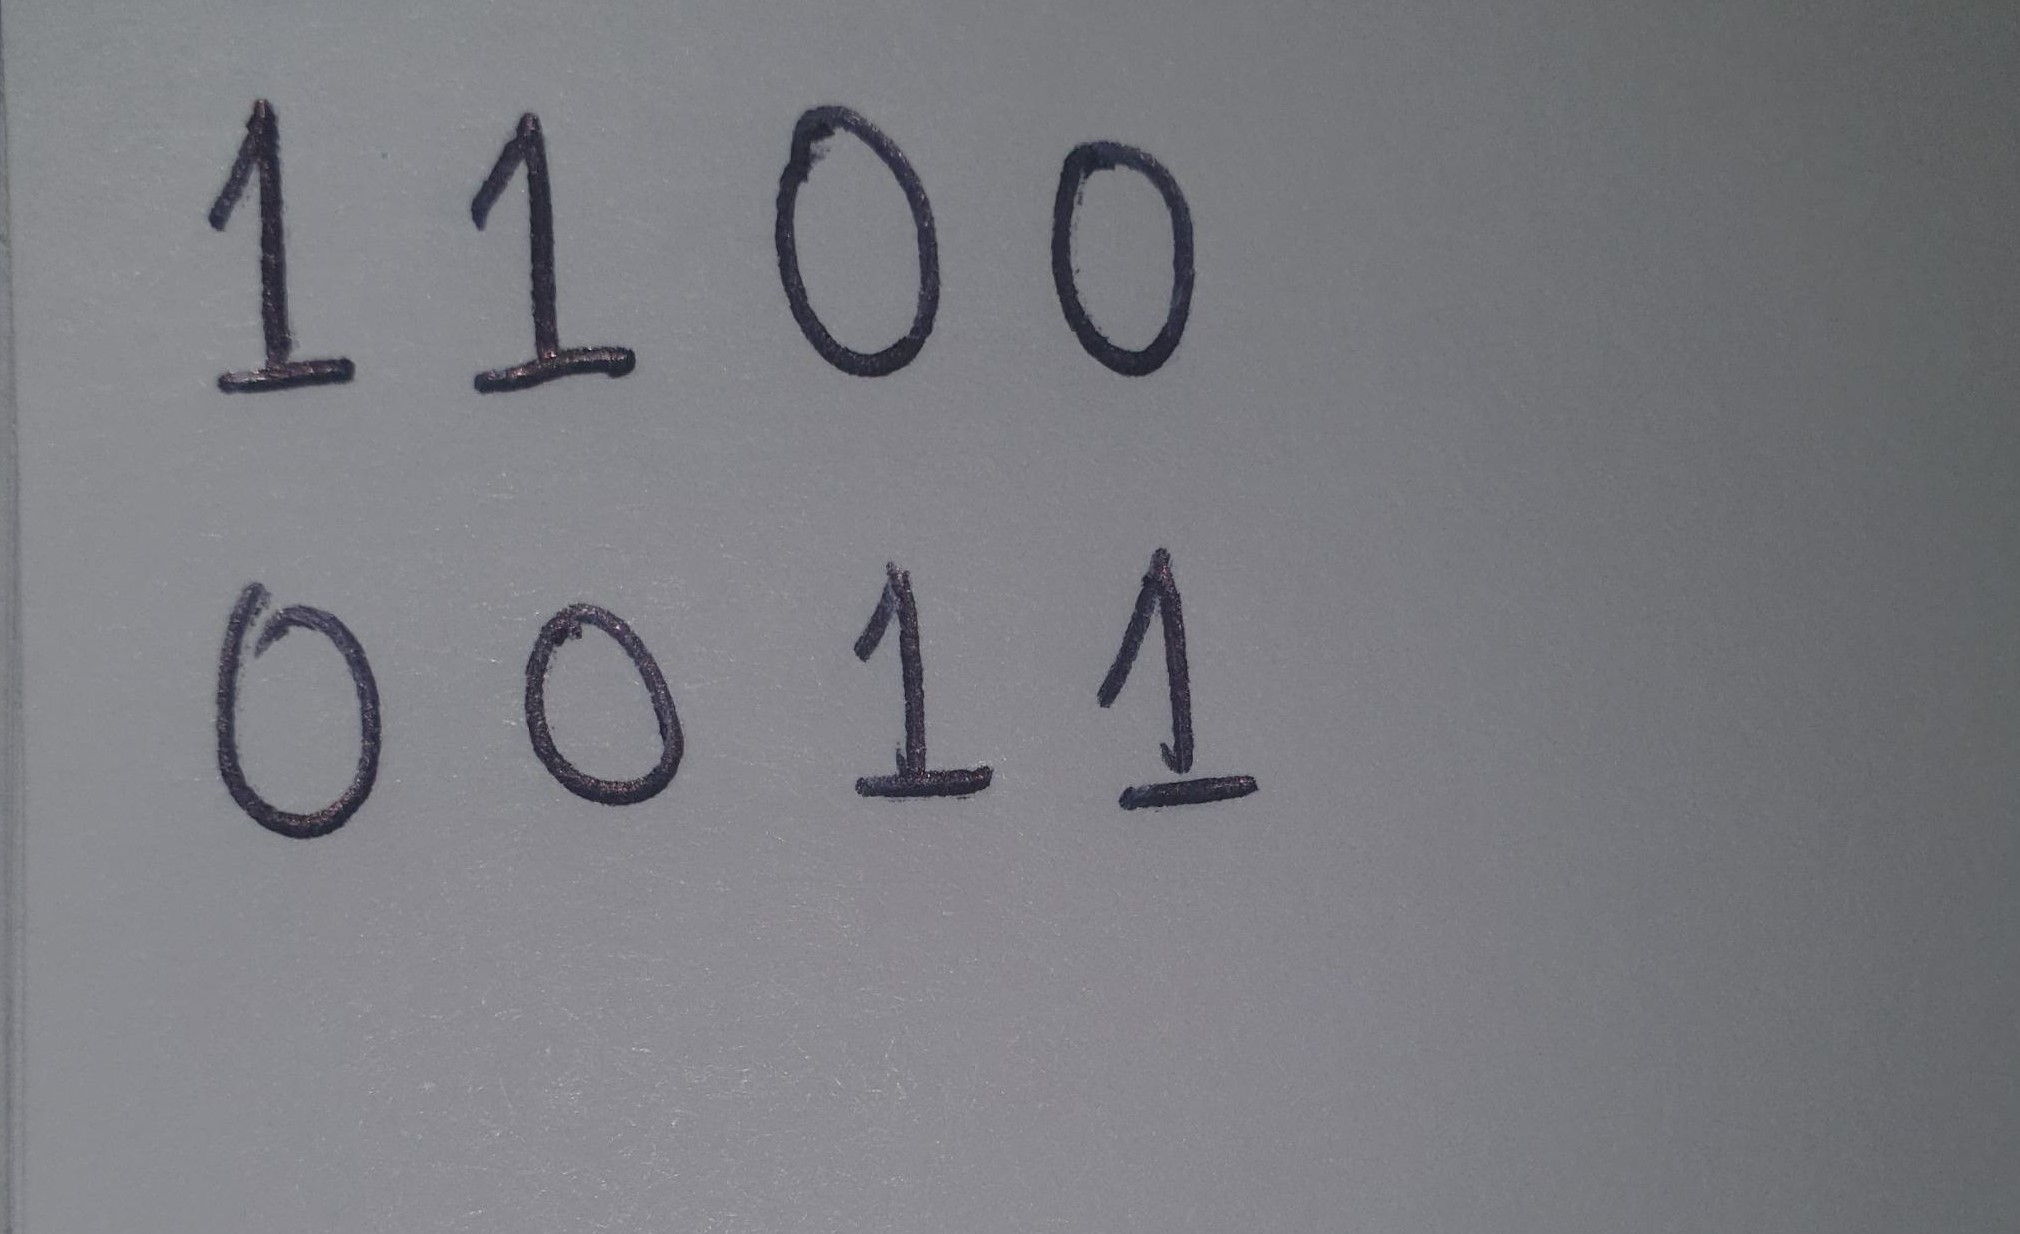 1100
0011